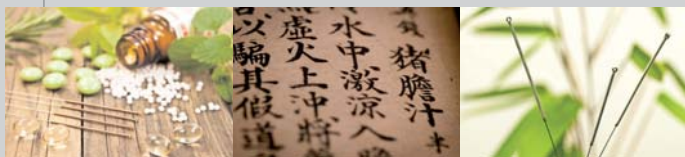 錢 猪膽汁 半
水中激涼入
虛火上沖將
以騙其假道